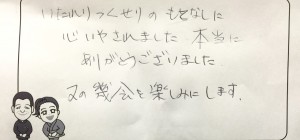 いたれりつくせりの もてなしに
心いやされました 本当に
ありがとうございました
又の機会を楽しみにします。